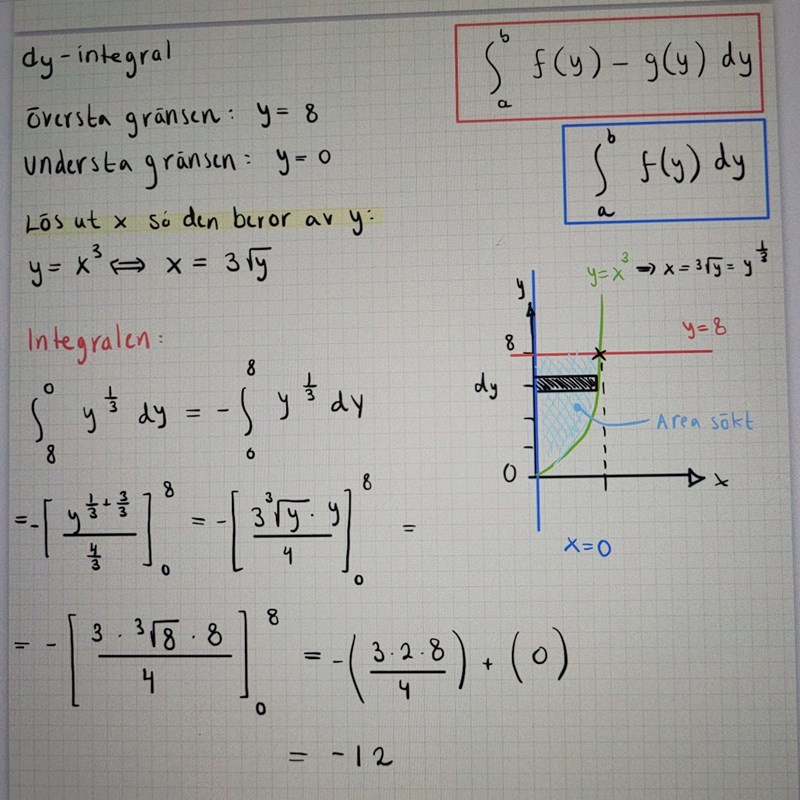 dy-integral
∫_a^b f(y) - g(y) dy
Översta gränsen: y = 8
Understa gränsen: y = 0
∫_a^b f(y) dy
Lös ut x så den beror av y:
y = x³ ⟺ x = 3√y
y
y=x³ ⇒ x = ³√y = y^(1/3)
8
y=8
dy
Area sökt
0
x
x=0
Integralen:
∫_8^0 y^(1/3) dy = -∫_0^8 y^(1/3) dy
= -[y^(1/3 + 3/3) / (4/3)]_0^8 = -[3 ³√y · y / 4]_0^8 =
= -[3 · ³√8 · 8 / 4]_0^8 = -(3·2·8 / 4) + (0)
= -12